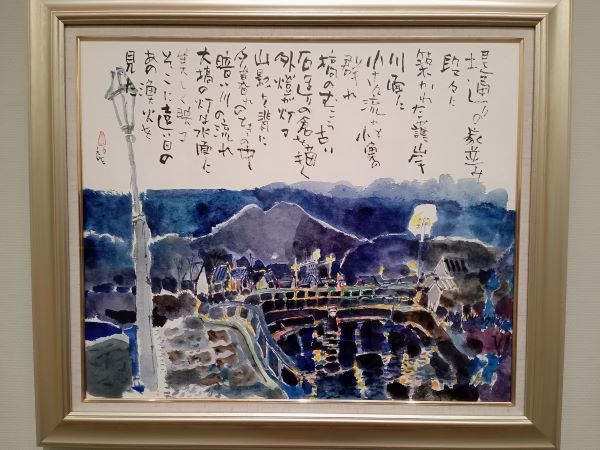 通りの家並み
段々に
築かれた護岸
川面に
小さな流れと小魚の
群れ
橋のむこう古い
石造りの倉を描く
外燈が灯る
山影を背に
夕暮れの
暗い川の流れ
大橋の灯は水面に
美しく映る
そこに遠い日の
あの漁火を
見た